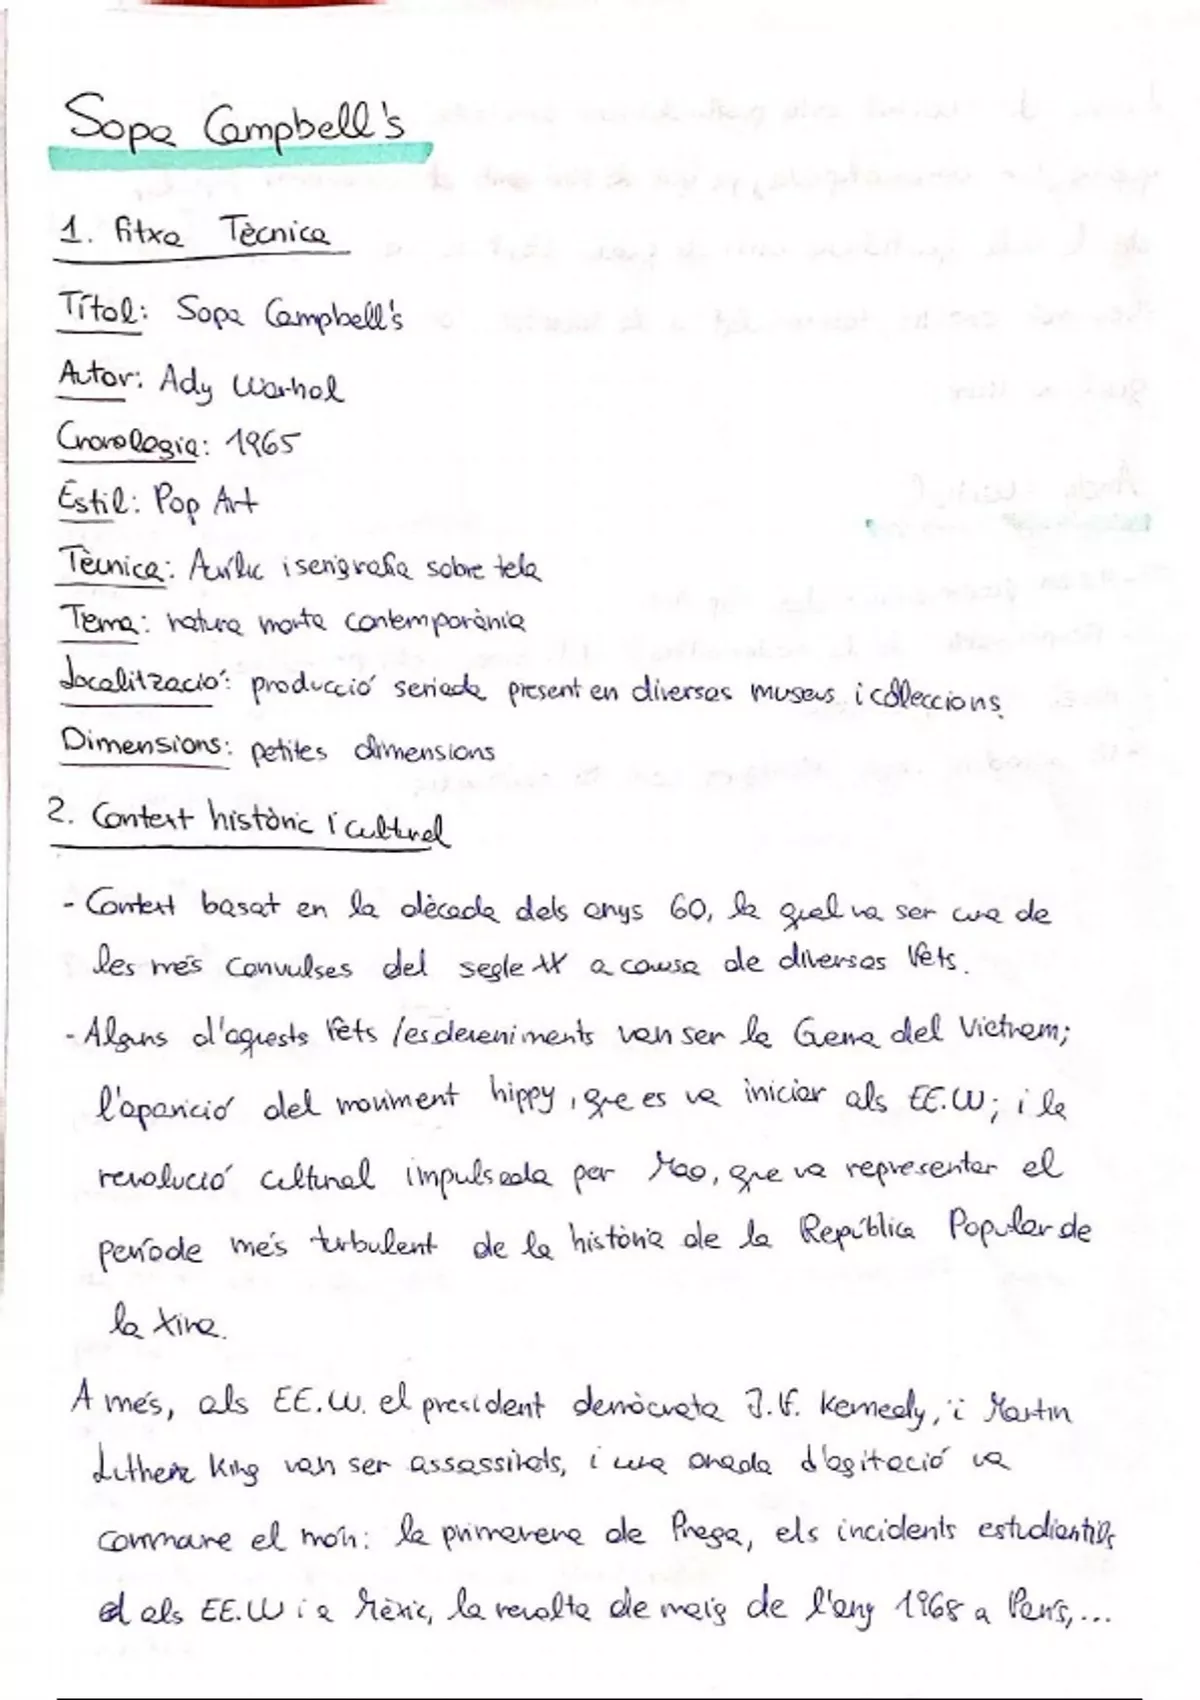 Sopa Campbell's
1. Fitxa Tècnica
Títol: Sopa Campbell's
Autor: Ady Warhol
Cronologia: 1965
Estil: Pop Art
Tècnica: Acrílic i serigrafia sobre tela
Tema: natura morta contemporània
Localització: producció seriada present en diverses museus i col·leccions.
Dimensions: petites dimensions
2. Context històric i cultural
- Context basat en la dècada dels anys 60, la qual va ser una de
les més convulses del segle XX a causa de diversos fets.
- Alguns d'aquests fets /esdeveniments van ser la Guerra del Vietnam;
l'aparició del moviment hippy, que es va iniciar als EE.UU; i la
revolució cultural impulsada per Mao, que va representar el
període més turbulent de la història de la República Popular de
la Xina.
A més, als EE.UU. el president demòcrata J.F. Kennedy, i Martin
Luther King van ser assassinats, i una onada d'agitació va
commoure el món: la primavera de Praga, els incidents estudiantils
als EE.UU i a Mèxic, la revolta de maig de l'any 1968 a París,...